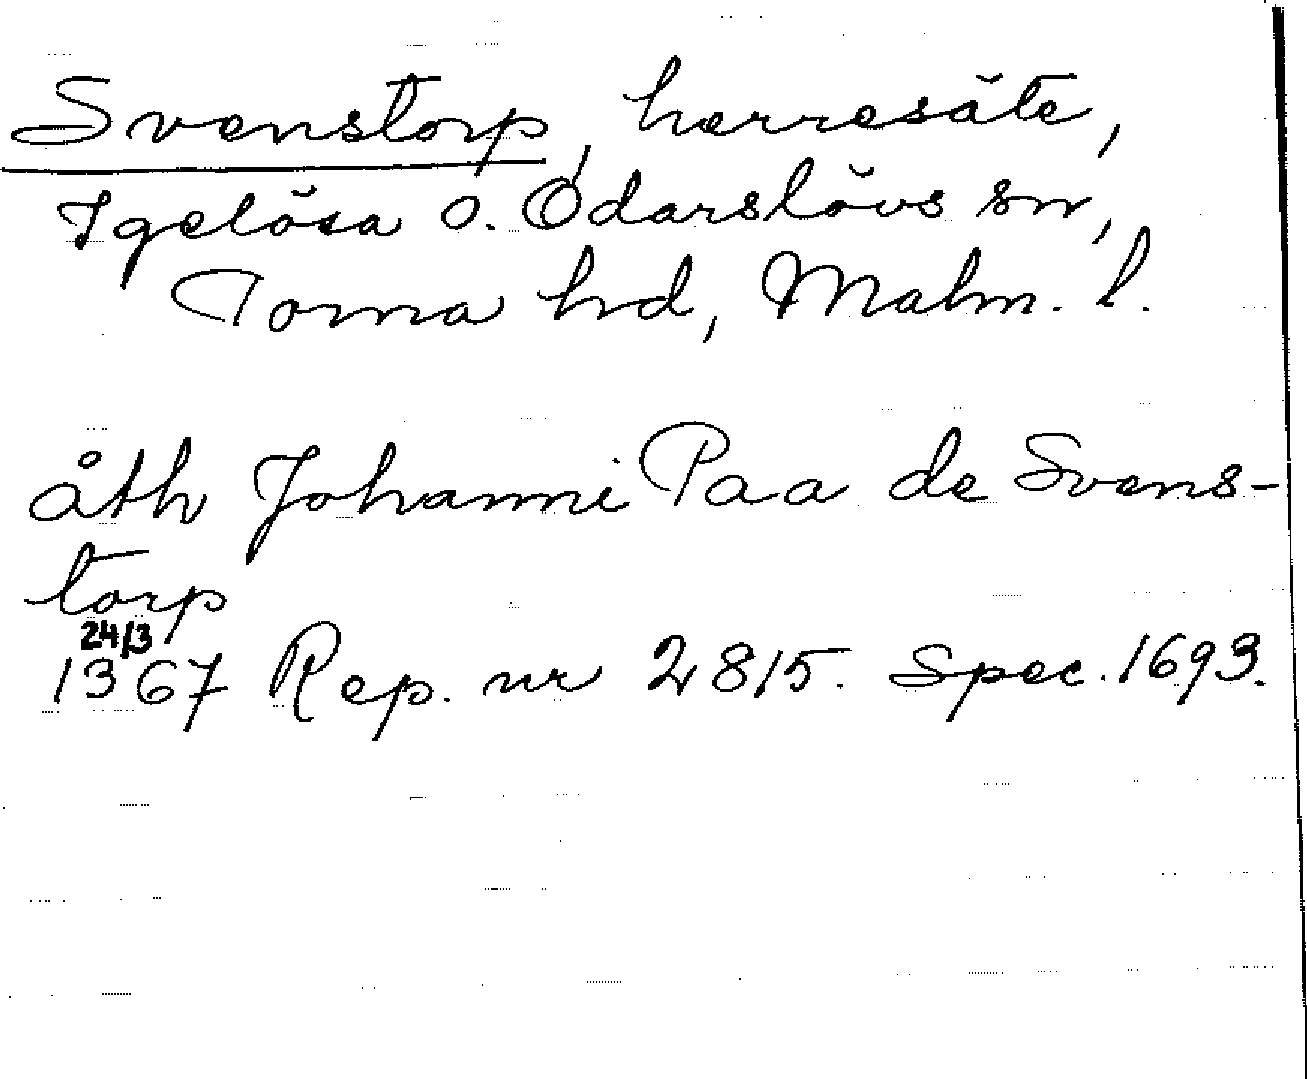 Svenstorp, herresäte,
Igelösa o. Odarslövs sn,
Torna hd, Malm. l.
åth Johanni Paa de Svens-
torp
24/3
1367 Rep. nr 2815. Spec. 1693.